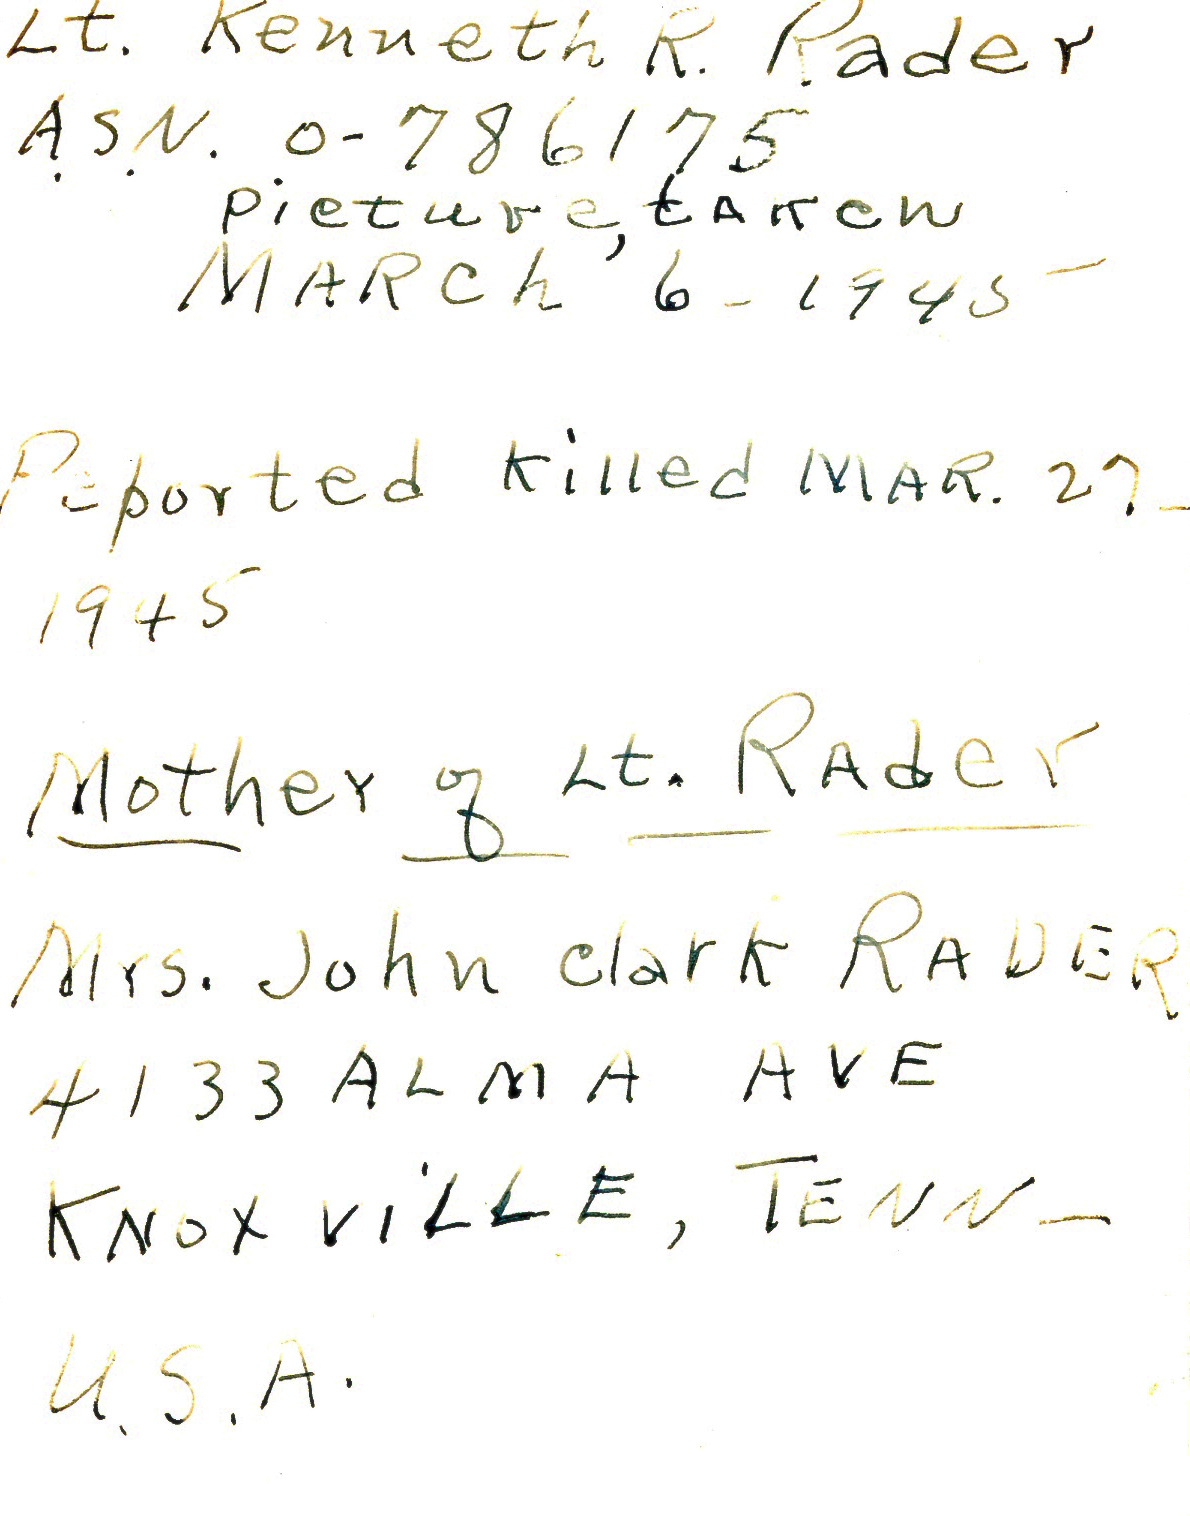 Lt. Kenneth R. Rader
A.S.N. O-786175
Picture, taken
MARCh 6-1945
Reported Killed MAR. 27-
1945
Mother of Lt. RAder
Mrs. John Clark RADER
4133 ALMA AVE
KNOXViLLE, TENN-
U.S.A.